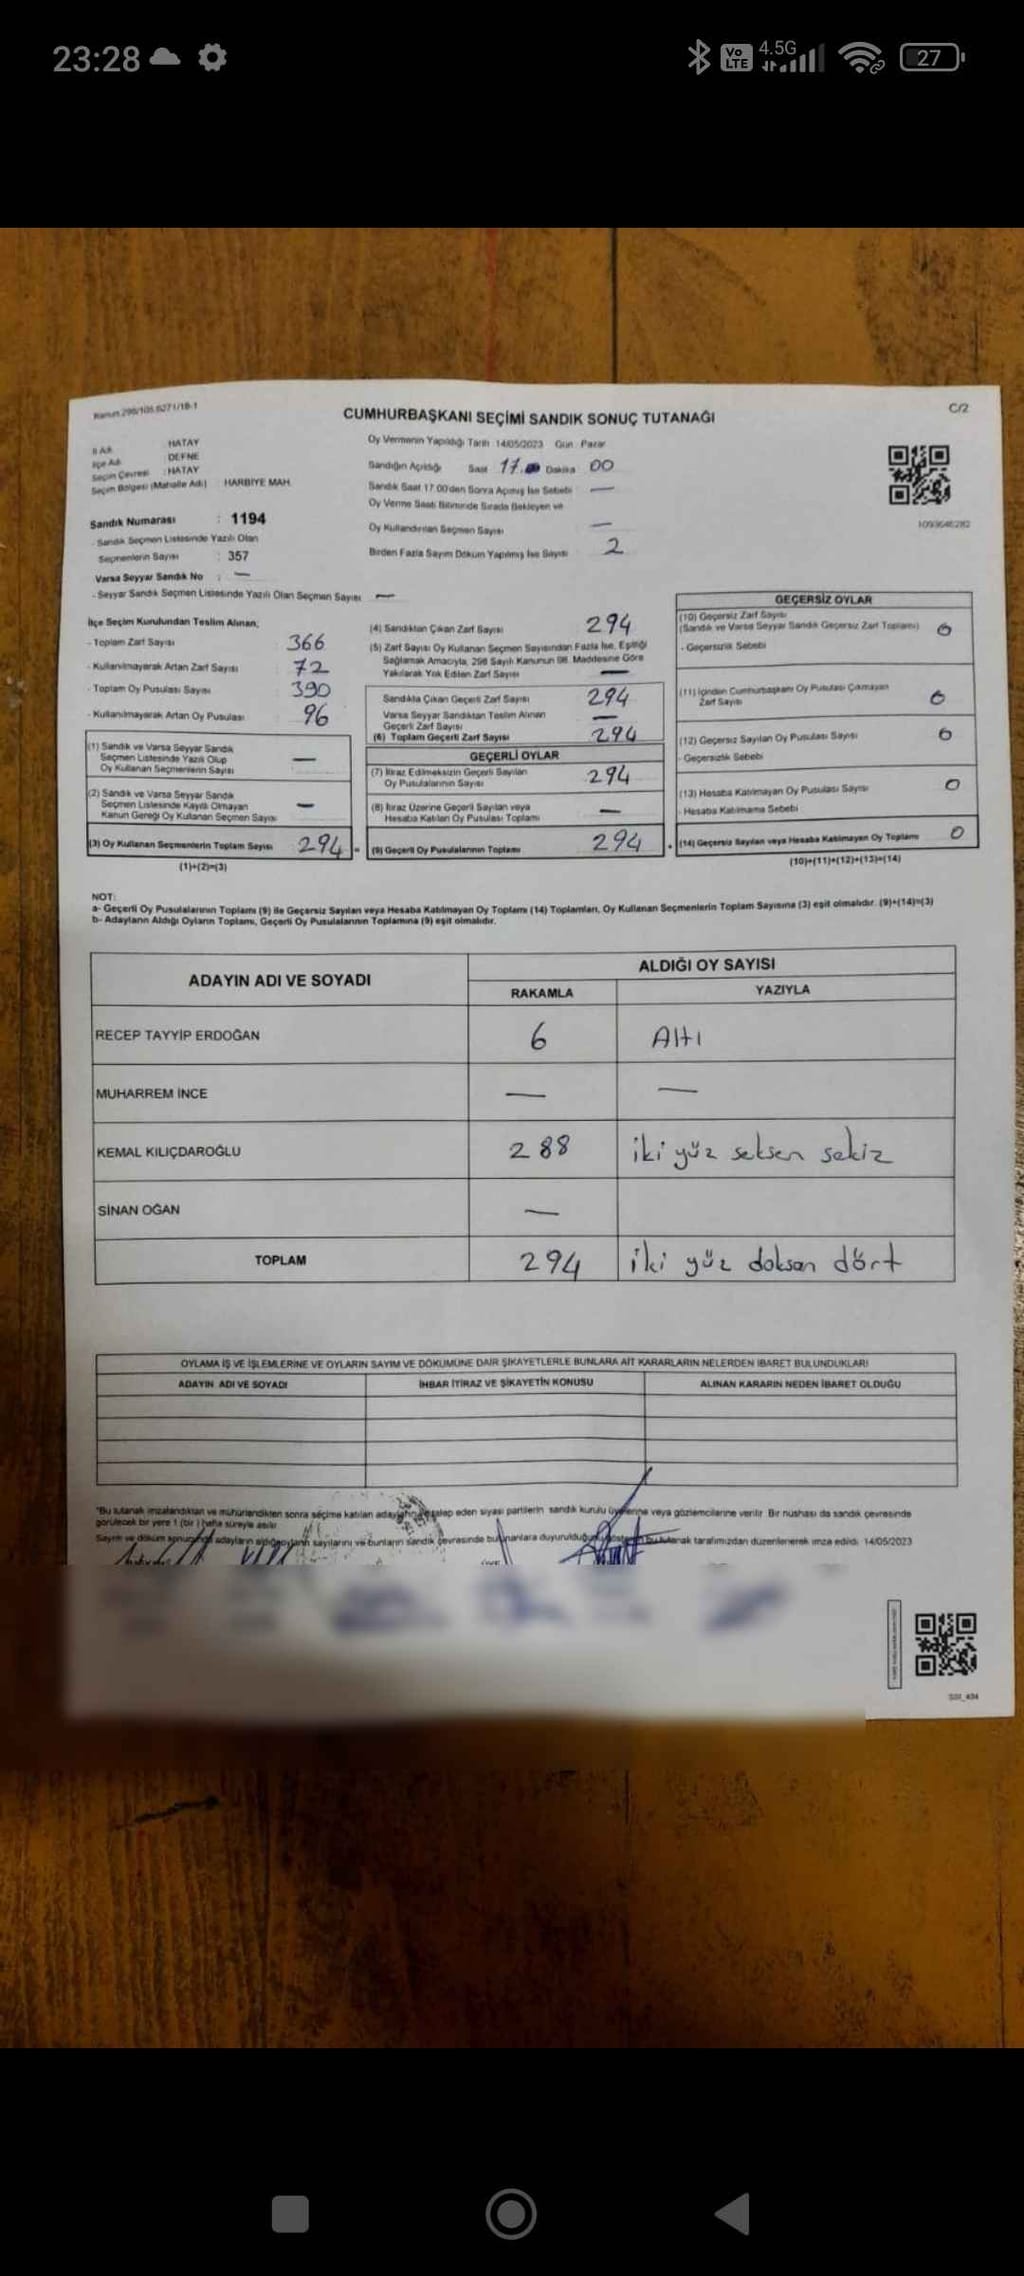 23:28
Vo LTE 4.5G 27
Kanun 298/105.6271/18-1
C/2
CUMHURBAŞKANI SEÇİMİ SANDIK SONUÇ TUTANAĞI
İl Adı : HATAY
İlçe Adı : DEFNE
Seçim Çevresi : HATAY
Seçim Bölgesi (Mahalle Adı) HARBİYE MAH.
Sandık Numarası : 1194
- Sandık Seçmen Listesinde Yazılı Olan
Seçmenlerin Sayısı : 357
Varsa Seyyar Sandık No : —
- Seyyar Sandık Seçmen Listesinde Yazılı Olan Seçmen Sayısı —
Oy Vermenin Yapıldığı Tarih 14/05/2023 Gün Pazar
Sandığın Açıldığı Saat 17.00 Dakika 00
Sandık Saat 17:00'den Sonra Açılmış İse Sebebi —
Oy Verme Saati Bitiminde Sırada Bekleyen ve
Oy Kullandırılan Seçmen Sayısı —
Birden Fazla Sayım Döküm Yapılmış İse Sayısı 2
İlçe Seçim Kurulundan Teslim Alınan;
- Toplam Zarf Sayısı 366
- Kullanılmayarak Artan Zarf Sayısı 72
- Toplam Oy Pusulası Sayısı 390
- Kullanılmayarak Artan Oy Pusulası 96
(1) Sandık ve Varsa Seyyar Sandık
Seçmen Listesinde Yazılı Olup
Oy Kullanan Seçmenlerin Sayısı —
(2) Sandık ve Varsa Seyyar Sandık
Seçmen Listesinde Kayıtlı Olmayan
Kanun Gereği Oy Kullanan Seçmen Sayısı —
(3) Oy Kullanan Seçmenlerin Toplam Sayısı 294
(1)+(2)=(3)
(4) Sandıktan Çıkan Zarf Sayısı 294
(5) Zarf Sayısı Oy Kullanan Seçmen Sayısından Fazla İse, Eşitliği
Sağlamak Amacıyla, 298 Sayılı Kanunun 98. Maddesine Göre
Yakılarak Yok Edilen Zarf Sayısı —
Sandıkta Çıkan Geçerli Zarf Sayısı 294
Varsa Seyyar Sandıktan Teslim Alınan
Geçerli Zarf Sayısı —
(6) Toplam Geçerli Zarf Sayısı 294
GEÇERLİ OYLAR
(7) İtiraz Edilmeksizin Geçerli Sayılan
Oy Pusulalarının Sayısı 294
(8) İtiraz Üzerine Geçerli Sayılan veya
Hesaba Katılan Oy Pusulası Toplamı —
(9) Geçerli Oy Pusulalarının Toplamı 294
GEÇERSİZ OYLAR
(10) Geçersiz Zarf Sayısı
(Sandık ve Varsa Seyyar Sandık Geçersiz Zarf Toplamı) 0
- Geçersizlik Sebebi
(11) İçinden Cumhurbaşkanı Oy Pusulası Çıkmayan
Zarf Sayısı 0
(12) Geçersiz Sayılan Oy Pusulası Sayısı 0
- Geçersizlik Sebebi
(13) Hesaba Katılmayan Oy Pusulası Sayısı 0
- Hesaba Katılmama Sebebi
(14) Geçersiz Sayılan veya Hesaba Katılmayan Oy Toplamı 0
(10)+(11)+(12)+(13)=(14)
NOT:
a- Geçerli Oy Pusulalarının Toplamı (9) ile Geçersiz Sayılan veya Hesaba Katılmayan Oy Toplamı (14) Toplamları, Oy Kullanan Seçmenlerin Toplam Sayısına (3) eşit olmalıdır. (9)+(14)=(3)
b- Adayların Aldığı Oyların Toplamı, Geçerli Oy Pusulalarının Toplamına (9) eşit olmalıdır.
ADAYIN ADI VE SOYADI ALDIĞI OY SAYISI
RAKAMLA YAZIYLA
RECEP TAYYİP ERDOĞAN 6 Altı
MUHARREM İNCE — —
KEMAL KILIÇDAROĞLU 288 iki yüz seksen sekiz
SİNAN OĞAN —
TOPLAM 294 iki yüz doksan dört
OYLAMA İŞ VE İŞLEMLERİNE VE OYLARIN SAYIM VE DÖKÜMÜNE DAİR ŞİKAYETLERLE BUNLARA AİT KARARLARIN NELERDEN İBARET BULUNDUKLARI
ADAYIN ADI VE SOYADI İHBAR İTİRAZ VE ŞİKAYETİN KONUSU ALINAN KARARIN NEDEN İBARET OLDUĞU
*Bu tutanak imzalandıktan ve mühürlendikten sonra seçime katılan adaylara talep eden siyasi partilerin sandık kurulu üyelerine veya gözlemcilerine verilir. Bir nüshası da sandık çevresinde
görülecek bir yere 1 (bir) hafta süreyle asılır.
Sayım ve döküm sonucunda adayların aldığı oyların sayılarını ve bunların sandık çevresinde bulunanlara duyurulduğunu gösteren bu tutanak tarafımızdan düzenlenerek imza edildi. 14/05/2023